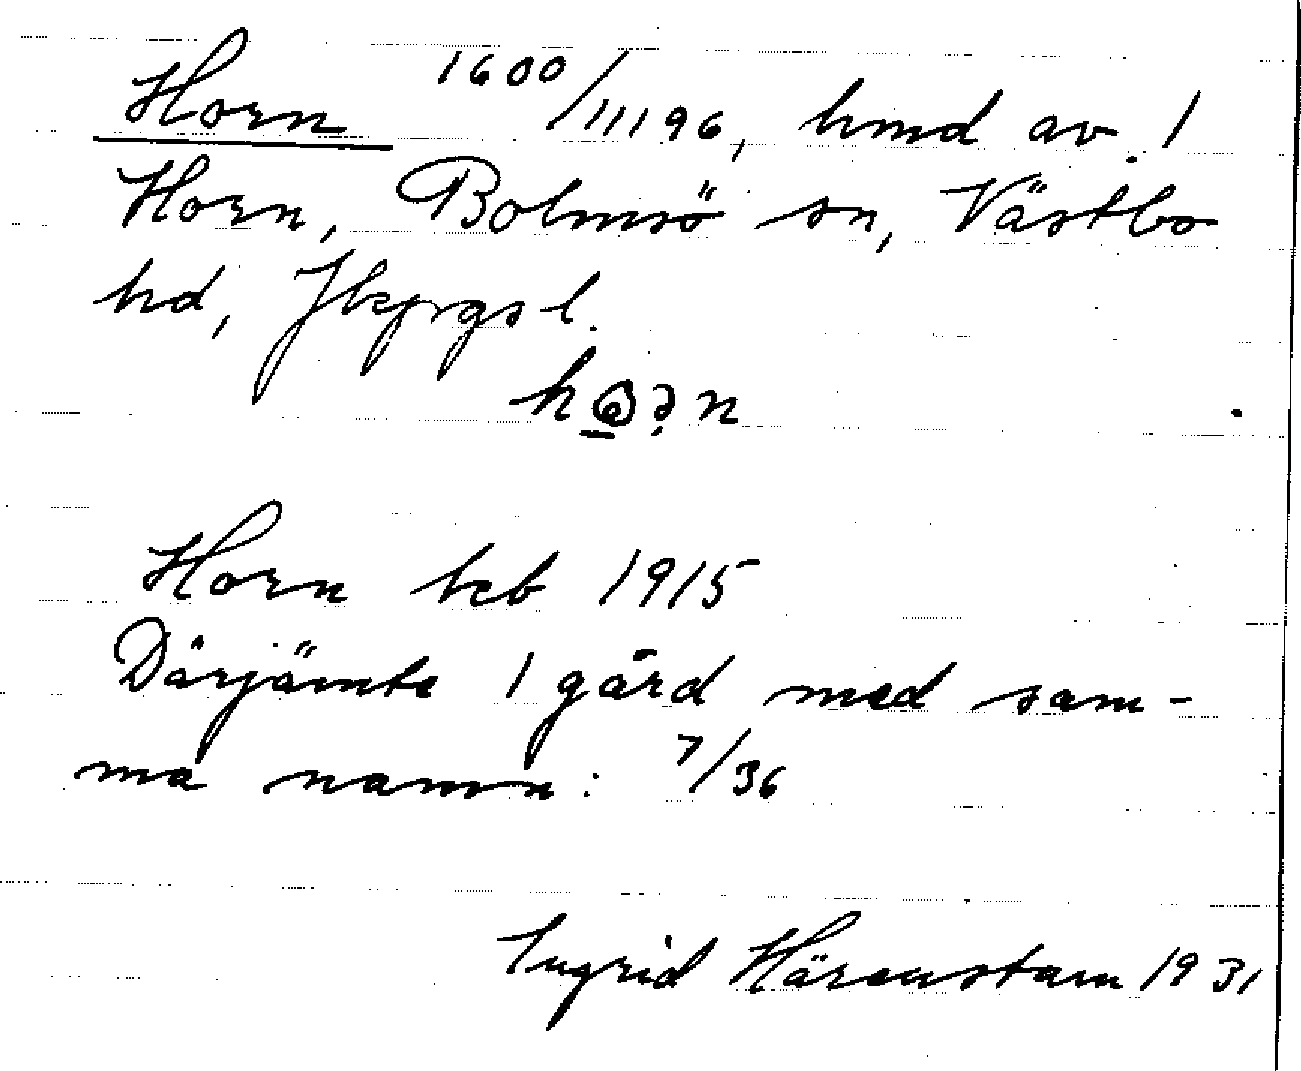 Horn 1600/11196, hmd av 1
Horn, Bolmsö sn, Västbo
hd, Jkpgs l.
Horn keb 1915
Därjämte 1 gård med sam-
ma namn: 7/36
Ingrid Härenstam 1931